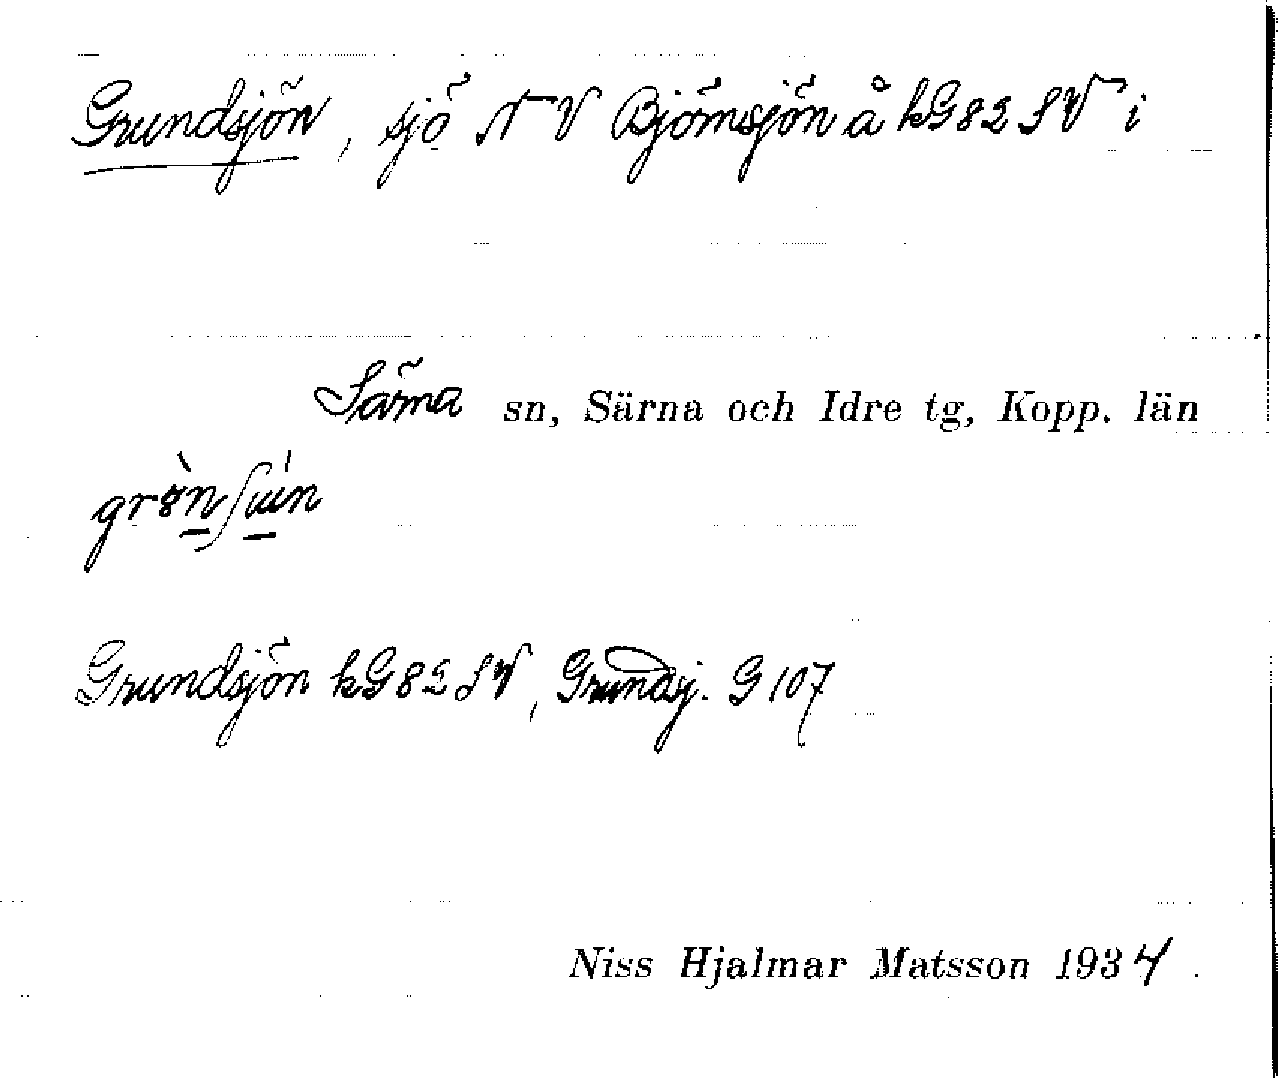 Grundsjön, sjö NV Björnsjön å kG82SV i
Särna sn, Särna och Idre tg, Kopp. län
Grundsjön kG82SV, Grundsj. G107
Niss Hjalmar Matsson 1934.